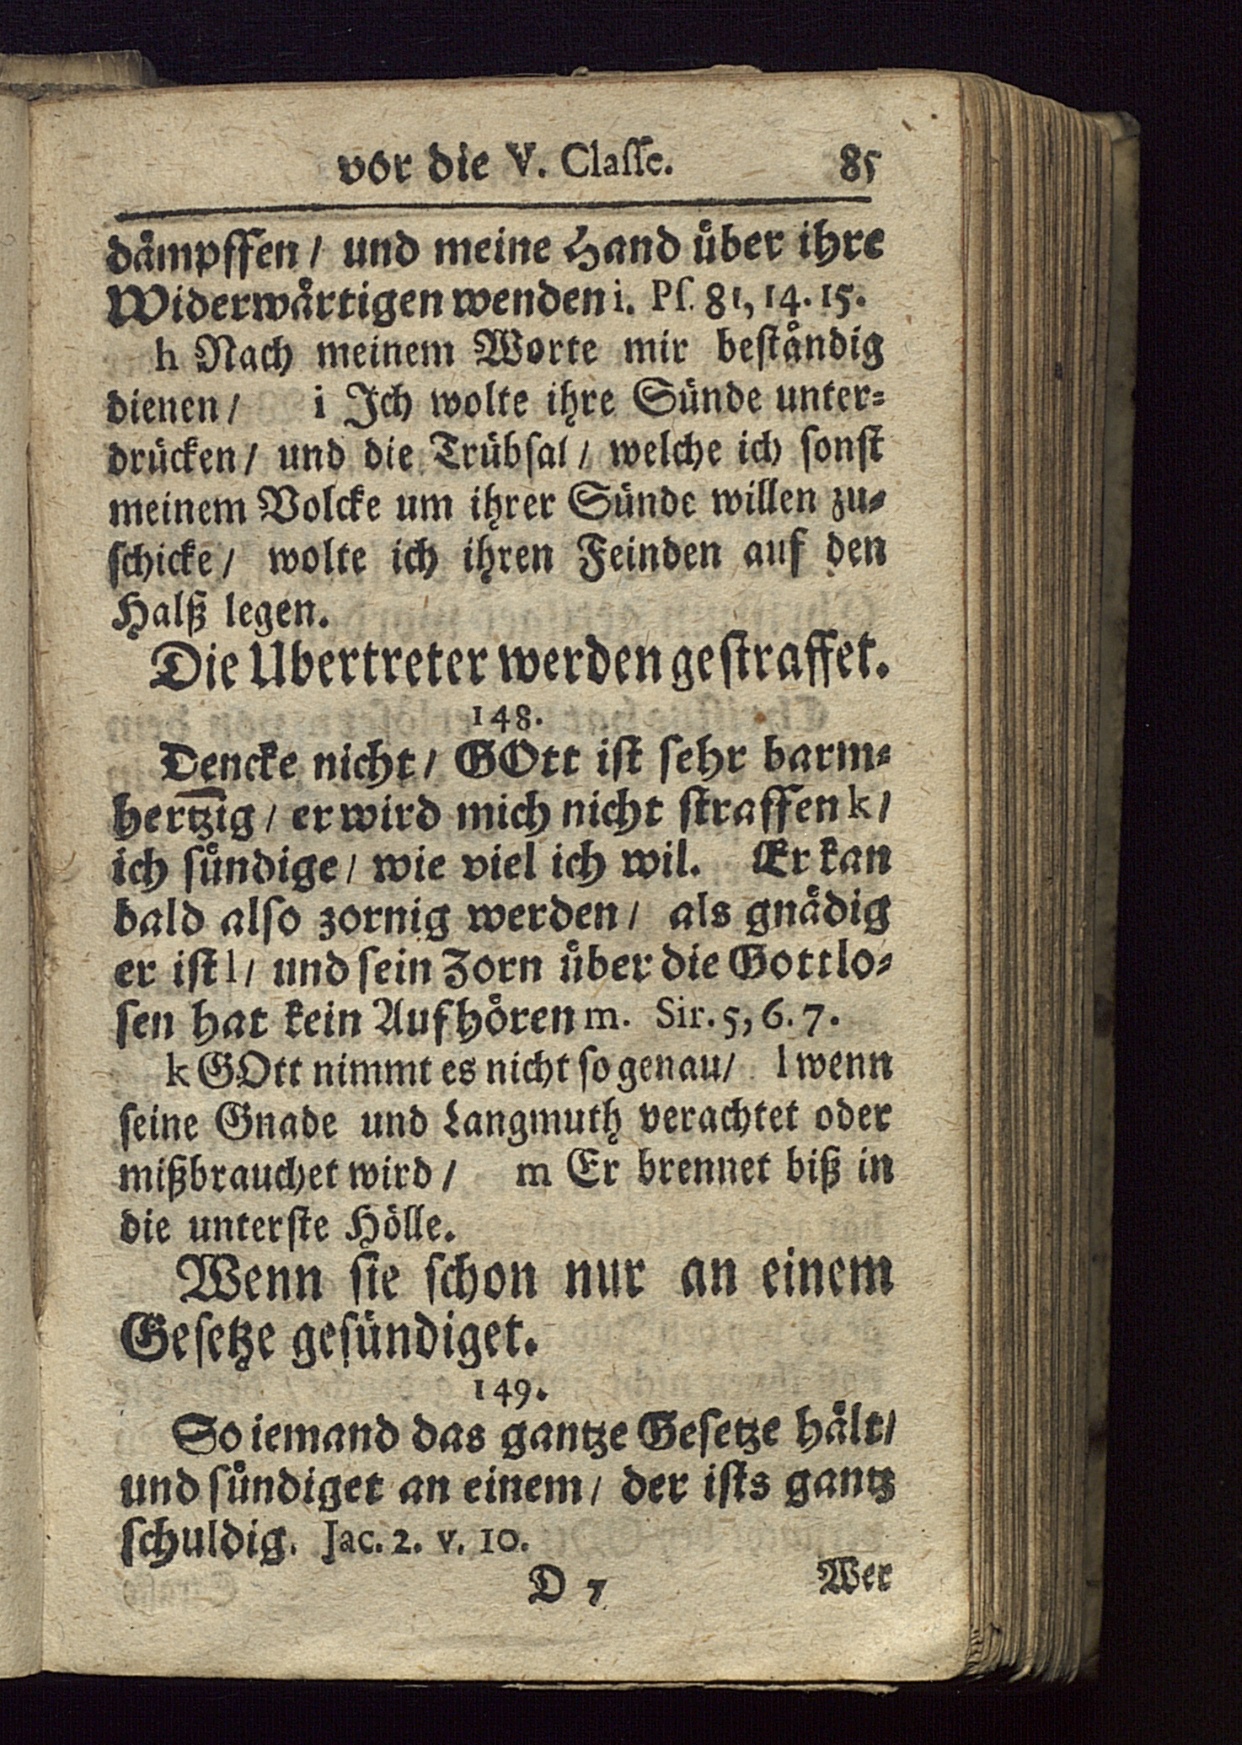 vor die V. Claſſe. 85
daͤmpffen / und meine Hand uͤber ihre
Widerwaͤrtigen wenden i. Pſ. 81, 14. 15.
h Nach meinem Worte mir beſtaͤndig
dienen / i Ich wolte ihre Suͤnde unter-
druͤcken / und die Truͤbſal / welche ich ſonſt
meinem Volcke um ihrer Suͤnde willen zu-
ſchicke / wolte ich ihren Feinden auf den
Halß legen.
Die Ubertreter werden geſtraffet.
148.
Dencke nicht / GOtt iſt ſehr barm-
hertzig / er wird mich nicht ſtraffen k /
ich ſuͤndige / wie viel ich wil. Er kan
bald alſo zornig werden / als gnaͤdig
er iſt l / und ſein Zorn uͤber die Gottlo-
ſen hat kein Aufhoͤren m. Sir. 5, 6. 7.
k GOtt nimmt es nicht ſo genau / l wenn
ſeine Gnade und Langmuth verachtet oder
mißbrauchet wird / m Er brennet biß in
die unterſte Hoͤlle.
Wenn ſie ſchon nur an einem
Geſetze geſuͤndiget.
149.
So iemand das gantze Geſetze haͤlt /
und ſuͤndiget an einem / der iſts gantz
ſchuldig. Jac. 2. v. 10.
D 7 Wer